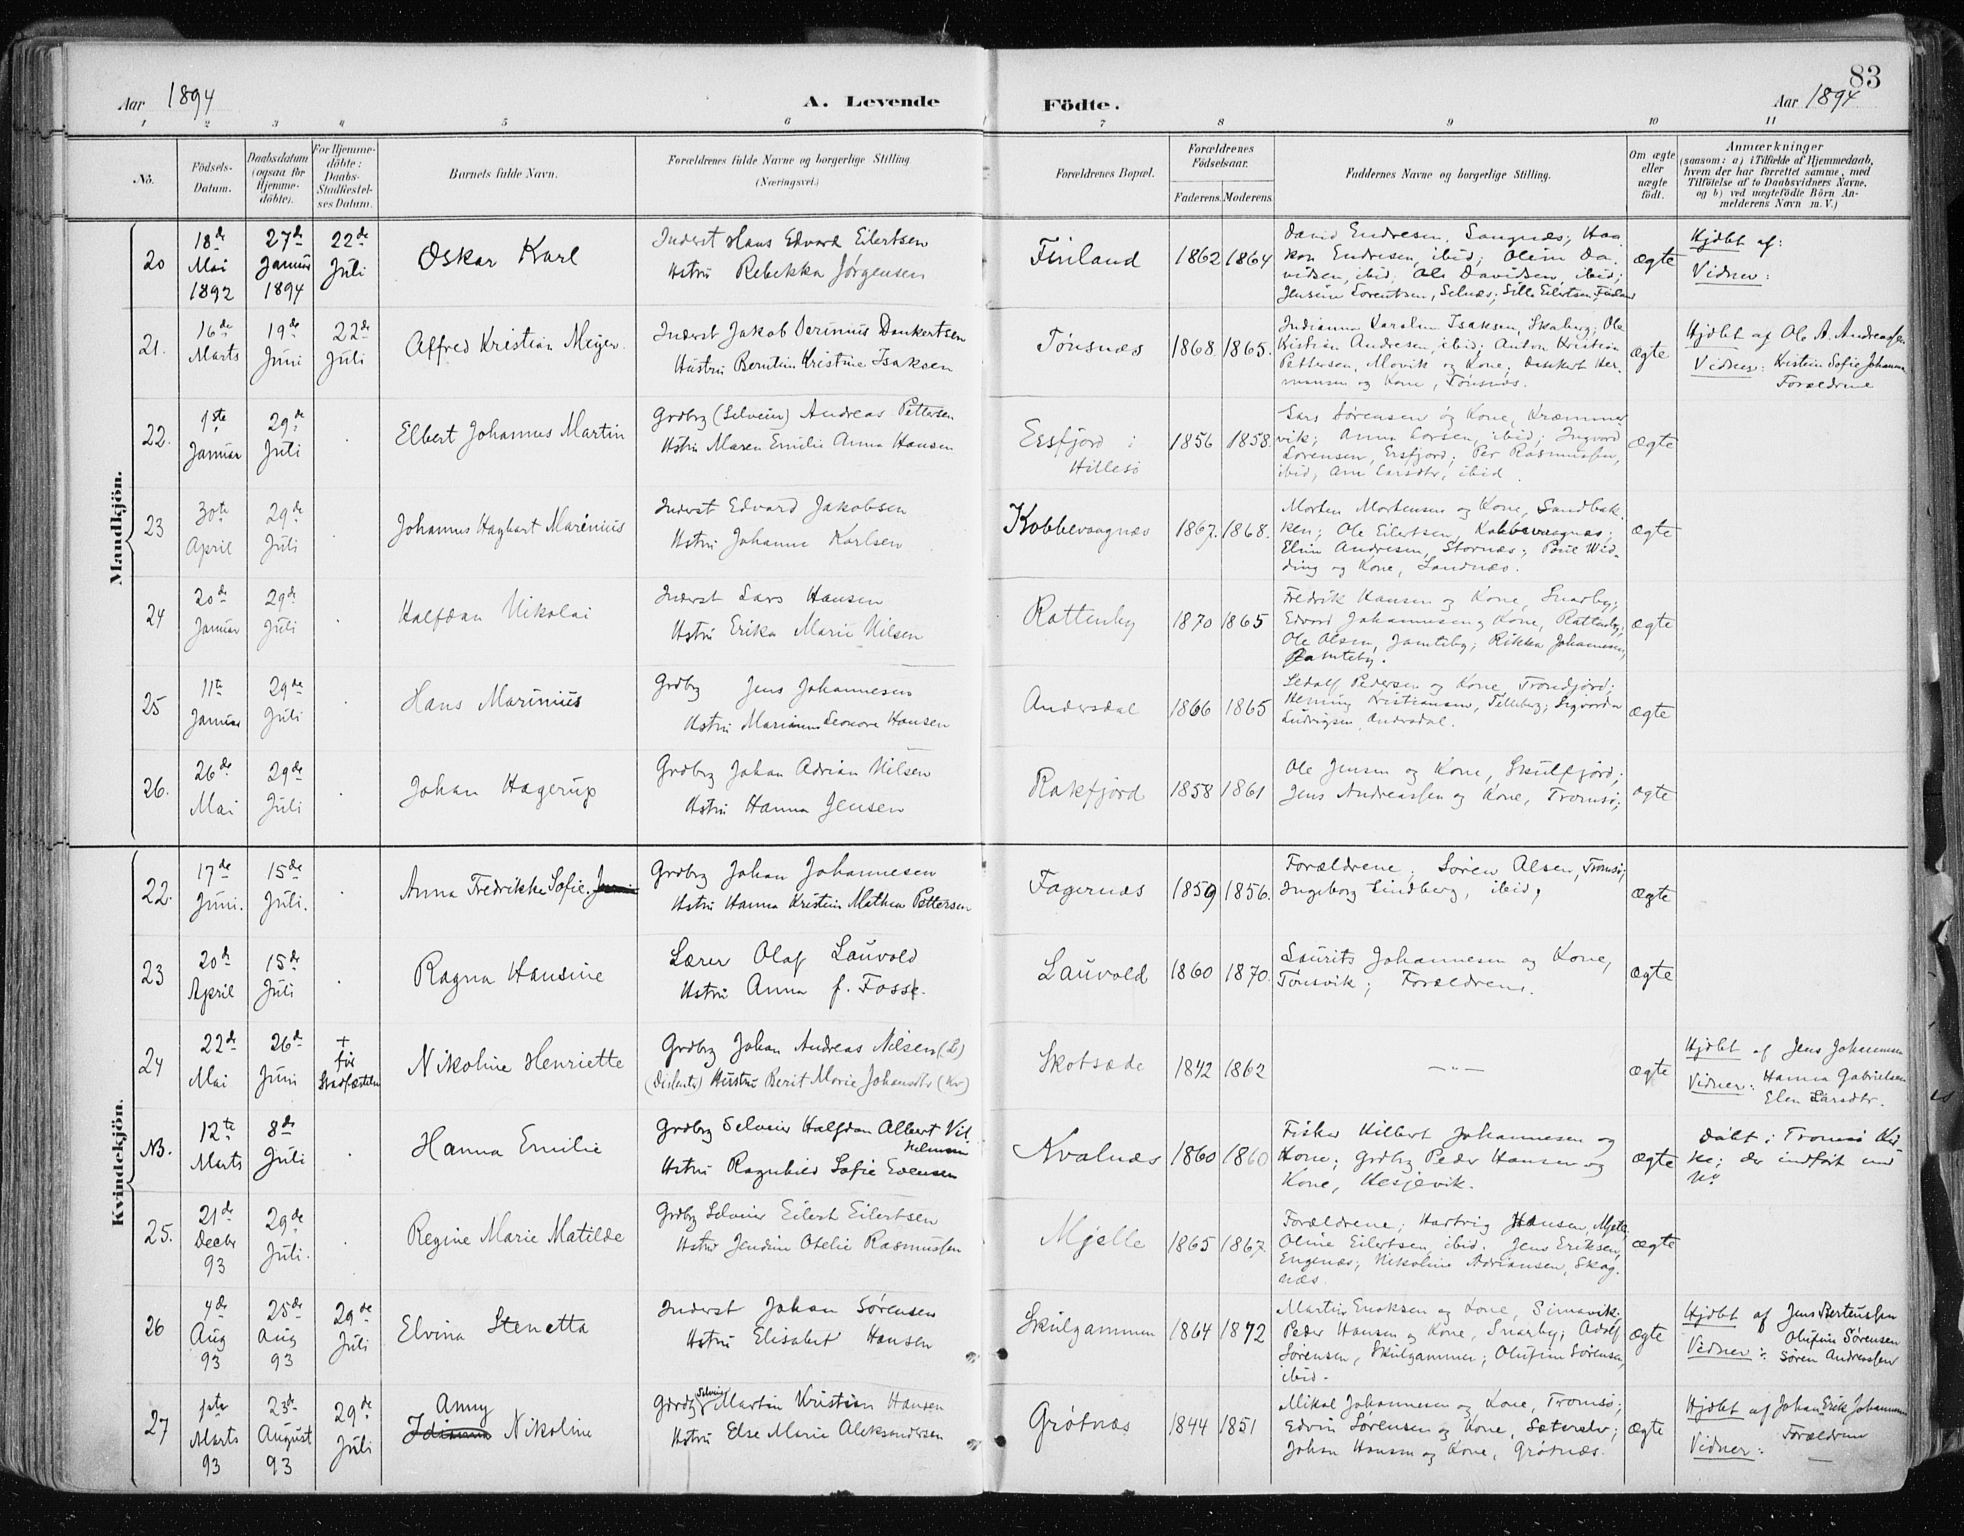 83
Aar 1894
A. Levende
Födte.
Aar 1894
1 2 3 4 5 6 7 8 9 10 11
No.
Födsels-Datum.
Daabsdatum (ogsaa for Hjemme-döbte).
For Hjemme-döbte: Daabs-Stadfæstel-ses Datum.
Barnets fulde Navn.
Forældrenes fulde Navne og borgerlige Stilling (Næringsvei.)
Forældrenes Bopæl.
Forældrenes Födselsaar.
Faderens. Moderens.
Faddernes Navne og borgerlige Stilling.
Om ægte eller uægte födt.
Anmærkninger
(saasom: a) i Tilfælde af Hjemmedaab,
hvem der har forrettet samme, med
Tilföielse af to Daabsvidners Navne,
og b) ved uægtefödte Börn An-
melderens Navn m. V.)
Mandkjön.
20
18de Mai 1892
27de Januar 1894
22de Juli
Oskar Karl
Inderst Hans Edvard Eilertsen
Hstru Rebekka Jørgensen
Finland
1862 1864
David Endresen, Sangnæs; Haa-
kon Endresen, ibid; Oline Da-
vidsen, ibid; Ole Davidsen, ibid;
Jensine Sorentsen, Selnæs; Sille Eilertsen, Finland
ægte
Hjdbt af:
Vidner:
21.
16de Marts
19de Juni
22de Juli
Alfred Kristian Meyer
Inderst Jakob Severinus Dankertsen
Hustru Berntine Kristine Isaksen
Tönsnæs
1868 1865.
Indianna Karoline Isaksen, Skaberg; Ole
Kristian Andresen, ibid; Anton Kristian
Pettersen, Movik og Kone; Dankert Her-
mansen og Kone, Tönsnæs.
ægte
Hjdbt af Ole A. Andreassen
Vidner: Kristein Sofie Johanna
Forældrene
22.
1ste Januar
29de Juli
Elbert Johannes Martin
Grdbrg (Selveier) Andreas Pettersen
Hstru Maren Emilie Anna Hansen
Ersfjord i
Hillesö
1856 1858.
Lars Sørensen og Kone, Kræmmer-
vik; Anna Larsen, ibid; Ingvord
Sørensen, Ersfjord; Per Rasmussen,
ibid, Ane Larsdtr, ibid.
ægte
23
30te April
29de Juli
Johannes Hagbart Marénius
Inderst Edvard Jakobsen
Hstru Johanne Karlsen
Kobbevaagnæs
1867. 1868.
Morten Mortensen og Kone, Sandbak-
ken; Ole Eilertsen, Kobbevaagnæs;
Eline Andresen, Stornæs; Poul Wid-
ding og Kone, Sandnæs.
ægte
24
20de Januar
29de Juli
Halfdan Nikolai
Inderst Lars Hansen
Hstru Erika Marie Nilsen
Rottenby
1870 1865
Fredrik Hansen og Kone, Snarby;
Edvard Johannesen og Kone, Rottenby;
Ole Olsen, Jamteby; Rikka Johannesen,
Jamteby.
ægte
25
11te Januar
29de Juli
Hans Marinius
Grdbrg Jens Johannesen
Hstru Marianne Leonora Hansen
Andersdal
1866 1865
Ledolf Pedersen og Kone, Tromdjord;
Henning Kristiansen, Tilleberg; Sigvarda
Ludvigsen, Andersdal.
ægte
26.
26de Mai
29de Juli
Johan Hagerup
Grdbrg Johan Adrian Nilsen
Hstru Hanna Jensen
Rakfjord
1858 1861
Ole Jensen og Kone, Skulfjord;
Jens Andreassen og Kone, Tromsö;
ægte
Kvindekjön.
22.
17de Juni.
15de Juli.
Anna Fredrikke Sofie.
Grdbrg Johan Johannesen
Hstru Hanna Kristein Mathea Pettersen
Fagernæs
1859 1856.
Forældrene; Sören Olsen, Tromsö;
Ingeborg Lindberg, ibid;
ægte
23
20de April
15de Juli
Ragna Hansine
Lærer Olaf Lauvold
Hstru Anna f. Foss.
Lauvold
1860 1870.
Laurits Johannesen og Kone,
Tönsvik; Forældrene.
ægte
24
22de Mai
26de Juni
+ før Stadfæstelsen
Nikoline Henriette
Grdbrg Johan Andreas Nilsen (L)
(Disbnts) Hustru Berit Marie Johansdtr (Kv)
Skotsæde
1842 1862
— „ —
ægte
Hjdbt af Jens Johannesen
Vidner: Hanna Gabrielsen
Elen Larsdtr.
NB.
12te Marts
8de Juli
Hanna Emilie
Grdbrg Selveier Halfdan Albert Vil-
helmsen
Hstru Ragnhild Sofie Evensen
Kvalnæs
1860 1860
Fisker Hilbert Johannesen og
Kone; Grdbrg Peder Hansen og
Kone, Hesjevik.
ægte
Døbt i Tromsö Kir-
ke; der indført med
No
25.
21de Decbr 93
29de Juli.
Regine Marie Matilde
Grdbrg Selveier Eilert Eilertsen
Hstru Jendine Otelie Rasmussen
Mjelle
1865 1867.
Forældrene; Hartvig Hansen, Mjele;
Oline Eilertsen, ibid. Jens Eriksen,
Engenæs; Nikoline Adriansen, Skog-
næs.
ægte
26
4de Aug 93
25de Aug 93
29de Juli
Elvina Stenetta
Inderst Johan Sørensen
Hstru Elisabet Hansen
Skulgammen
1864 1872
Martin Enoksen og Kone, Simavik;
Peder Hansen og Kone, Snarby; Adolf
Sørensen, Skulgammen; Olufine Sørensen,
ibid.
ægte
Hjdbt af Jens Bertenssen
Olufine Sørensen
Vidner: Søren Andreassen
27
1ste Marts 93
23de August 93
29de Juli
Anny
Idianna Nikoline
Grdbrg Selveier Martin Kristian Hansen
Hstru Else Marie Aleksandersen
Grötnæs
1844 1851
Mikal Johannesen og Kone, Tromsö;
Edvin Sørensen og Kone, Sæterelv;
Johan Hansen og Kone, Grötnæs.
ægte
Hjdbt af Johan Erik Johannesen
Vidner: Forældrene